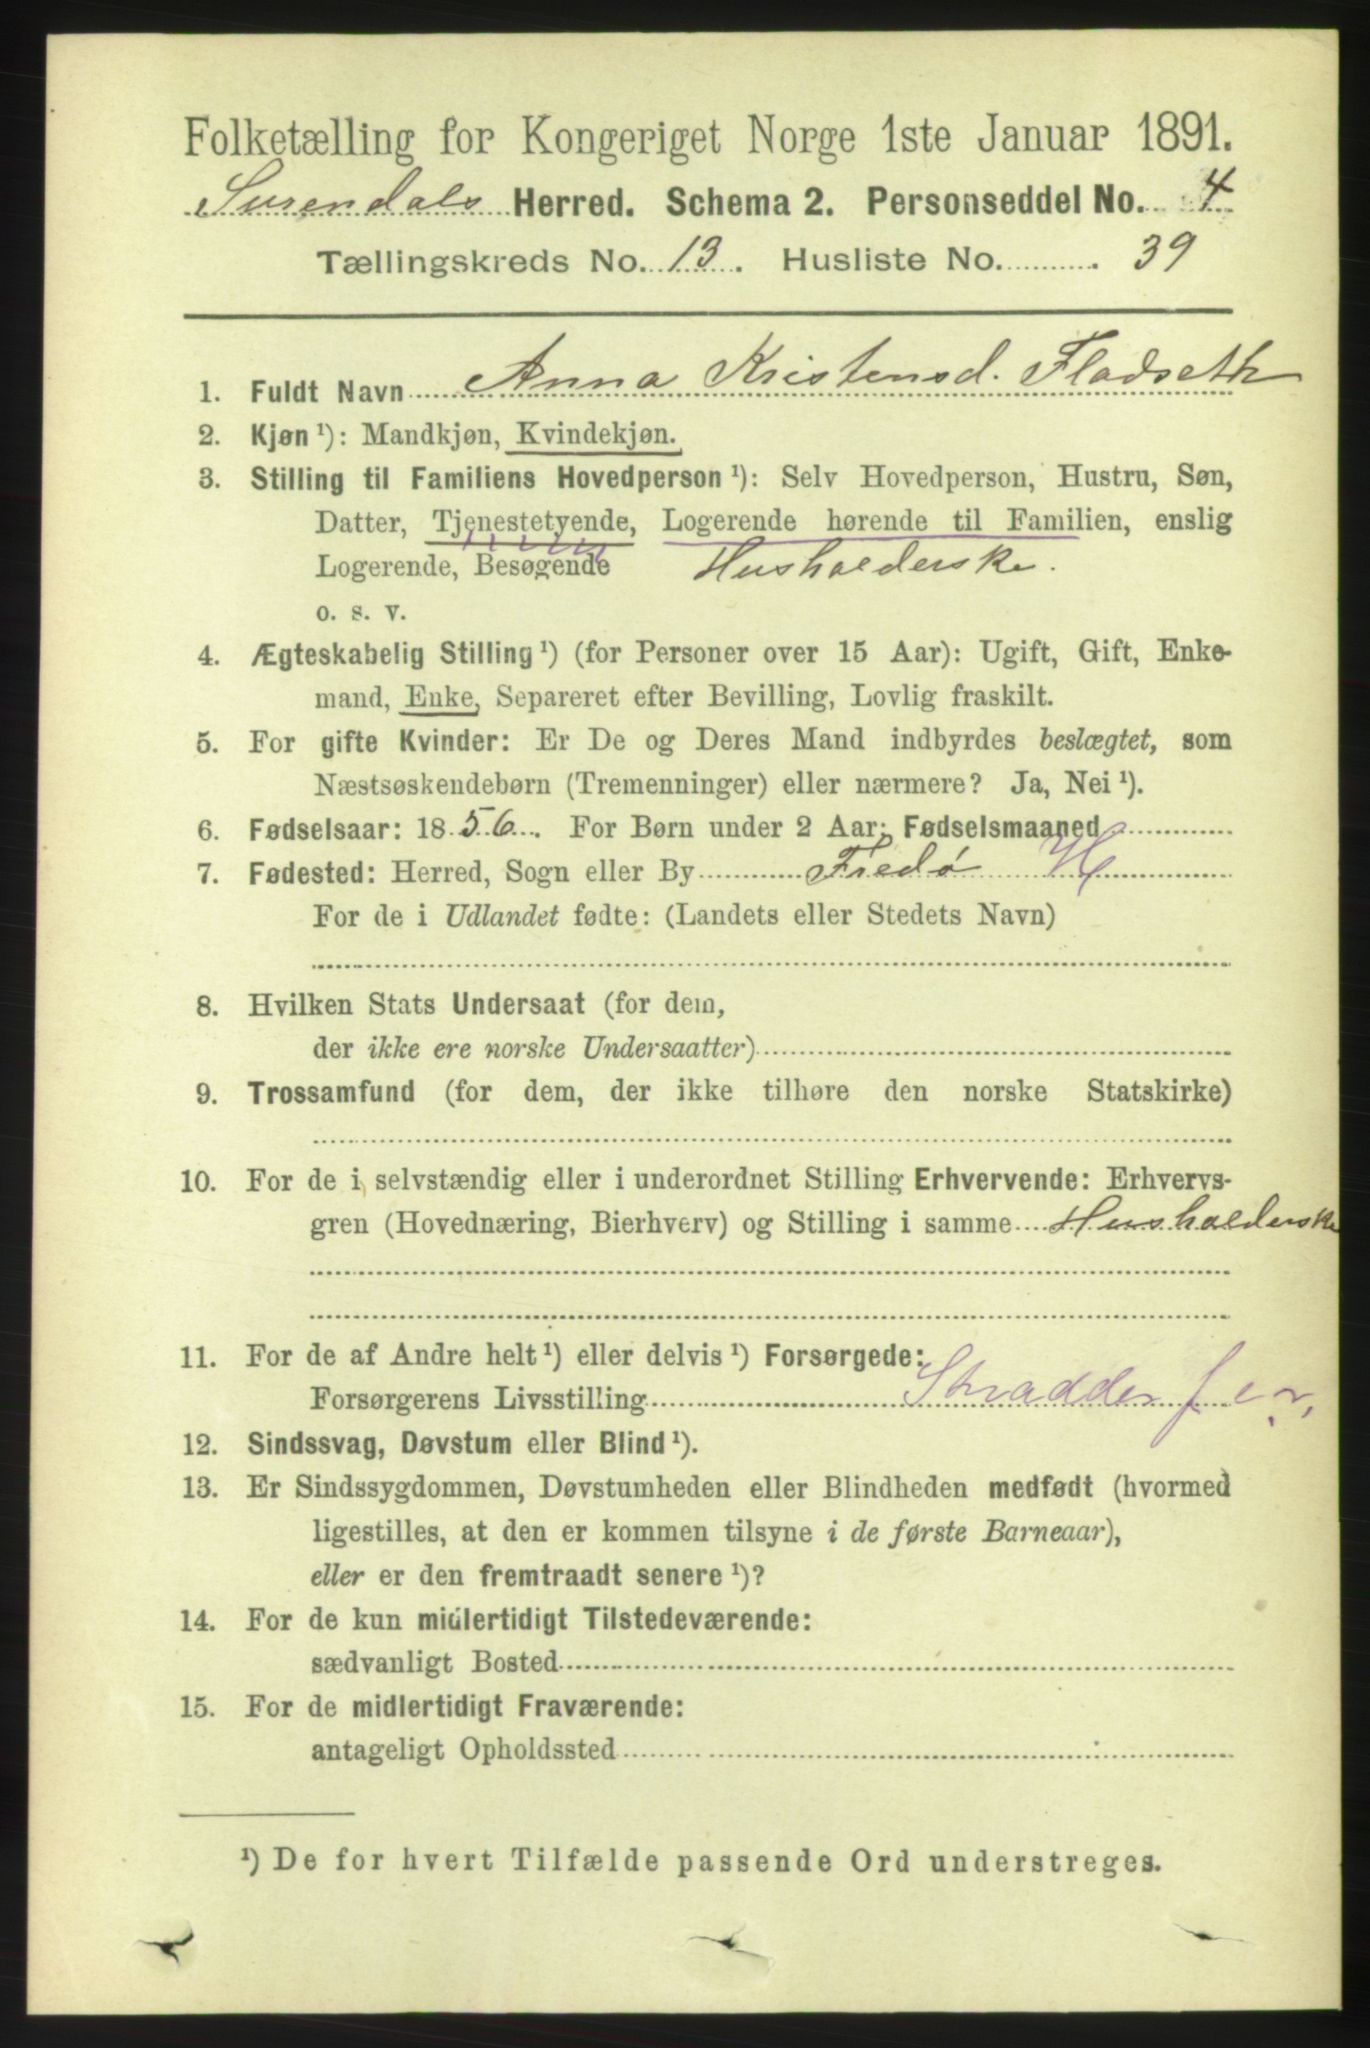 Folketælling for Kongeriget Norge 1ste Januar 1891.
Surendals Herred. Schema 2. Personseddel No. 4
Tællingskreds No. 13. Husliste No. 39
1. Fuldt Navn Anna Kristensd. Fladseth
2. Kjøn ¹): Mandkjøn, Kvindekjøn.
3. Stilling til Familiens Hovedperson ¹): Selv Hovedperson, Hustru, Søn,
Datter, Tjenestetyende, Logerende hørende til Familien, enslig
Logerende, Besøgende Husholderske.
o. s. v.
4. Ægteskabelig Stilling ¹) (for Personer over 15 Aar): Ugift, Gift, Enke-
mand, Enke, Separeret efter Bevilling, Lovlig fraskilt.
5. For gifte Kvinder: Er De og Deres Mand indbyrdes beslægtet, som
Næstsøskendebørn (Tremenninger) eller nærmere? Ja, Nei ¹).
6. Fødselsaar: 1856. For Børn under 2 Aar: Fødselsmaaned
7. Fødested: Herred, Sogn eller By Fredø H
For de i Udlandet fødte: (Landets eller Stedets Navn)
8. Hvilken Stats Undersaat (for dem,
der ikke ere norske Undersaatter)
9. Trossamfund (for dem, der ikke tilhøre den norske Statskirke)
10. For de i selvstændig eller i underordnet Stilling Erhvervende: Erhvervs-
gren (Hovednæring, Bierhverv) og Stilling i samme Husholderske
11. For de af Andre helt ¹) eller delvis ¹) Forsørgede:
Forsørgerens Livsstilling
12. Sindssvag, Døvstum eller Blind ¹).
13. Er Sindssygdommen, Døvstumheden eller Blindheden medfødt (hvormed
ligestilles, at den er kommen tilsyne i de første Barneaar),
eller er den fremtraadt senere ¹)?
14. For de kun midlertidigt Tilstedeværende:
sædvanligt Bosted
15. For de midlertidigt Fraværende:
antageligt Opholdssted
¹) De for hvert Tilfælde passende Ord understreges.